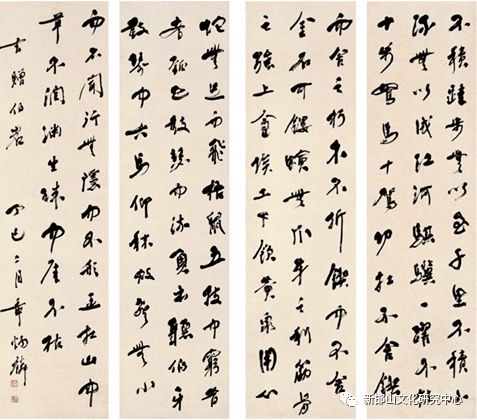 不積蹞步無以至千里不積小
流無以成江河騏驥一躍不能
十步駑馬十駕功在不舍鍥
而舍之朽木不折鍥而不舍
金石可鏤螾無爪牙之利筋骨
之強上食埃土下飲黃泉用心
蛇無足而飛梧鼠五技而窮昔
者瓠巴鼓瑟而流魚出聽伯牙
鼓琴而六馬仰秣故聲無小
而不聞行無隱而不形玉在山而
草木潤淵生珠而崖不枯
贈伯岩 丁巳二月章炳麟
新邮山文化研究中心